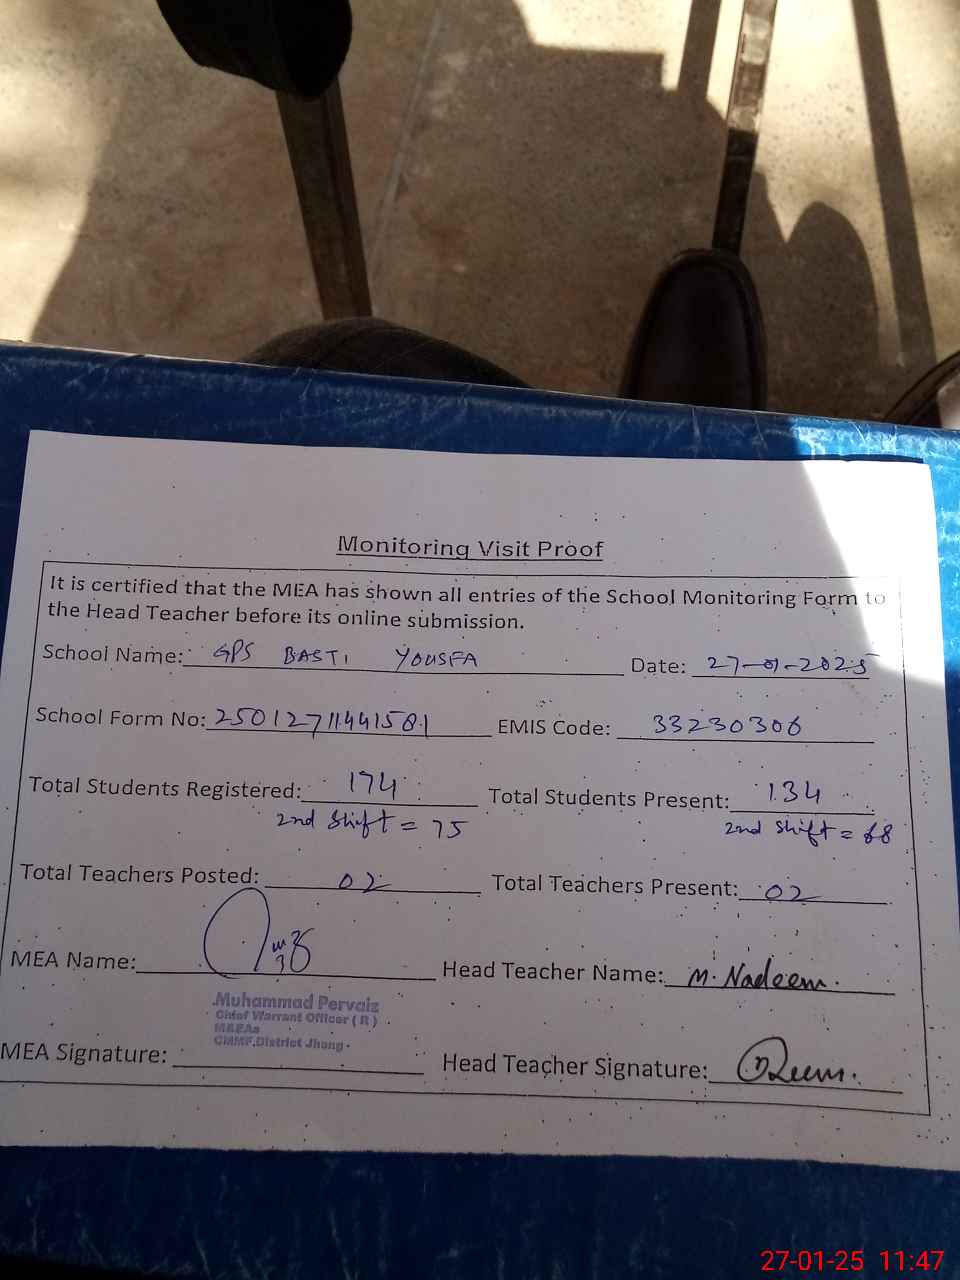 Monitoring Visit Proof
It is certified that the MEA has shown all entries of the School Monitoring Form to
the Head Teacher before its online submission.
School Name: GPS BASTI YOUSFA Date: 27-01-2025
School Form No: 25012711441581 EMIS Code: 33230306
Total Students Registered: 174 Total Students Present: 134
2nd Shift = 75 2nd Shift = 68
Total Teachers Posted: 02 Total Teachers Present: 02
MEA Name: Head Teacher Name: M. Nadeem.
Muhammad Pervaiz
Chief Warrant Officer ( R )
MAEAs
CMMF, District Jhang.
MEA Signature: Head Teacher Signature:
27-01-25 11:47